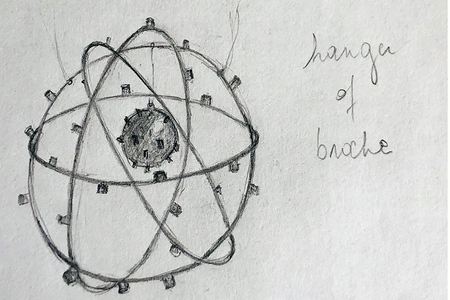 hanger
of
broche